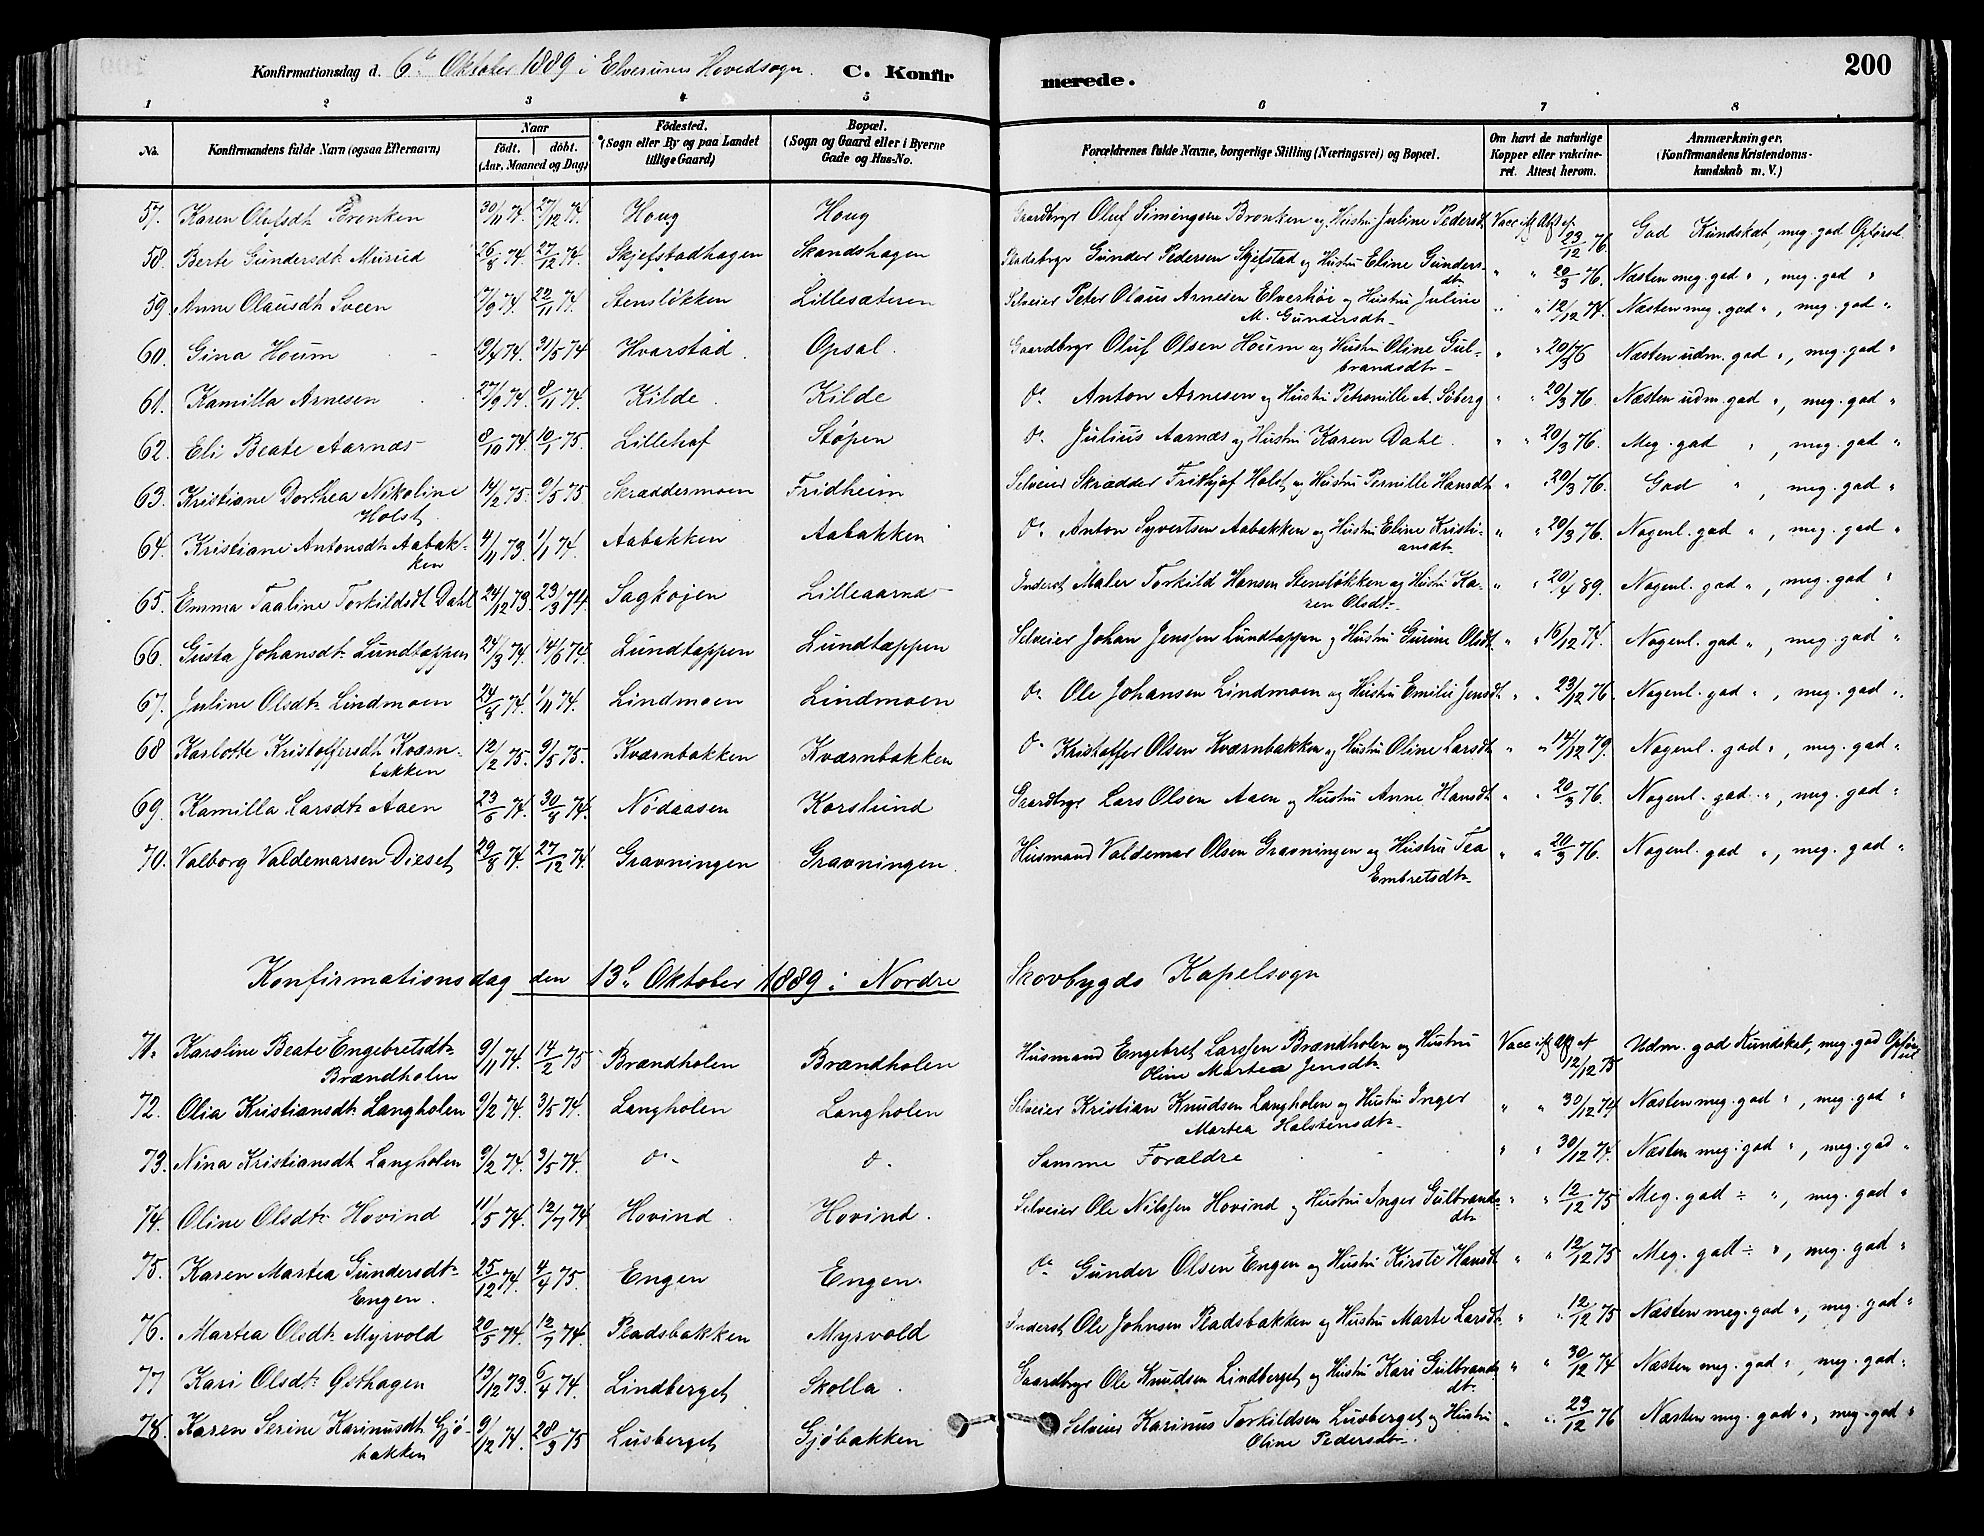 200
Konfirmationsdag d. 6te Oktober 1889 i Elverums Hovedsogn. C. Konfirmerede.
1 2 3 4 5 6 7 8
No. Konfirmandens fulde Navn (ogsaa Efternavn) Naar födt. döbt. (Aar, Maaned og Dag) Födested. (Sogn eller By og paa Landet tillige Gaard) Bopæl. (Sogn og Gaard eller i Byerne Gade og Hus-No. Forældrenes fulde Navne, borgerlige Stilling (Næringsvei) og Bopæl. Om havt de naturlige Kopper eller vakcineret. Attest herom. Anmærkninger. (Konfirmandens Kristendomskundskab m. V.)
57. Karen Olufsdt. Bronken 30/11 74. 27/12 74. Houg Houg Gaardbrgr Oluf Simingsen Bronken og Hustru Juline Pedersdt. Vacc. 23/12 76. God Kundskab, meg. god Opførsel
58. Berte Gundersdt. Musud 26/8 74. 27/12 74. Skjefstadhagen Skandshagen Gunder Pedersen Skjefstad og Hustru Eline Gundersdt. " " 20/3 76. Næsten meg. god ", meg. god "
59. Anne Olausdt. Sveen 7/9 74. 22/11 74. Stensløkken Lillesæteren Selveier Peter Olaus Arnesen Elverhøi og Hustru Juline M. Gundersdt. " " 12/12 74. Næsten meg. god ", meg. god "
60. Gina Houm 9/4 74. 31/5 74 Hvarstad. Opsal. Gaardbrgr Oluf Olsen Houm og Hustru Oline Gulbrandsdt. " " 20/3 76 Næsten udm. god ", meg. god "
61. Kamilla Arnesen 27/9 74. 8/11 74. Kilde. Kilde do. Anton Arnesen og Hustru Petronille A. Søberg " " 20/3 76. Næsten udm. god ", meg. god "
62. Eli Beate Aarnæs 8/10 74. 10/1 75. Lillehof Støpen do. Julius Aarnæs og Hustru Karen Dahl. " " 20/3 76. Meg. god ", meg. god "
63. Kristiane Dorthea Nikoline Holst 14/2 75. 9/5 75. Skræddermoen Fridheim Selveier Skrædder Frithjof Holst og Hustru Pernille Hansdt. " 20/3 76. God ", meg. god "
64. Kristiane Antonsdt. Aabakken 9/11 73. 1/1 74. Aabakken Aabakken do. Anton Syvertsen Aabakken og Hustru Eline Kristiansdt. " " 20/3 76. Nogenl. god ", meg. god "
65. Emma Taaline Torkildsdt. Dahl 24/12 73. 23/3 74. Sagkojen Lilleaarnæs Inderst, Maler Torkild Hansen Stensløkken og Hustru Karen Olsdt. " " 20/4 89. Nogenl. god ", meg. god "
66. Gusta Johansdt. Lundtappen 24/3 74. 14/6 74. Lundtappen Lundtappen Selveier Johan Jenssen Lundtappen og Hustru Gurine Olsdt. " " 16/12 74. Nogenl. god ", meg. god "
67. Juline Olsdt. Lindmoen 24/8 74. 1/11 74. Lindmoen Lindmoen do. Ole Johansen Lindmoen og Hustru Emilie Jensdt. " " 23/12 76. Nogenl. god ", meg. god "
68 Karlotte Kristoffersdt. Kværnbakken 12/2 75. 9/5 75. Kværnbakken Kværnbakken do. Kristoffer Olsen Kværnbakken og Hustru Oline Larsdt. " " 14/12 79. Nogenl. god ", meg. god "
69. Kamilla Larsdt. Aaen 23/6 74. 30/8 74. Nödaasen Korslund Gaardbrgr Lars Olsen Aaen og Hustru Anne Hansdt. " " 20/3 76. Nogenl. god ", meg. god "
70. Valborg Valdemarsen Dieset 29/8 74. 27/12 74. Gravningen Gravningen. Husmand Valdemar Olsen Gravningen og Hustru Tea Embretsdt. " " 20/3 76. Nogenl. god ", meg. god "
Konfirmationsdag den 13de Oktober 1889 i Nordre Skovbygds Kapelsogn
71. Karoline Beate Engebretsdt. Brændholen 9/11 74. 14/2 75 Brændholen Brændholen Husmand Engebret Larssen Brændholen og Hustru Oline Martea Jensdt. Vacc. 12/12 75 Udm. god Kundskab, meg. god Opførsel
72. Olia Kristiansdt. Langholen 9/2 74. 3/5 74. Langholen Langholen Selveier Kristian Knudsen Langholen og Hustru Inger Martea Halstensdt. " " 30/12 74 Næsten meg. god ", meg. god "
73. Nina Kristiansdt. Langholen 9/2 74. 3/5 74. do. do. Samme Forældre " " 30/12 74. Næsten meg. god ", meg. god "
74. Oline Olsdt. Hovind 11/5 74. 12/7 74 Hovind. Hovind. Selveier Ole Nilssen Hovind og Hustru Inger Gulbrandsdt. " " 12/12 75 Meg. god ÷ ", meg. god "
75. Karen Martea Gundersdt. Engen. 25/12 74. 4/4 75. Engen Engen. do. Gunder Olsen Engen og Hustru Kirsti Hansdt. " " 12/12 75 Meg. godt ÷ ", meg. god "
76. Martea Olsdt. Myrvold 20/5 74. 12/7 74. Pladsbakken Myrvold Inderst, Ole Johnsen Pladsbakken og Hustru Marte Larsdt. " " 12/12 75 Næsten meg. god ", meg. god "
77 Kari Olsdt. Østhagen 13/12 73. 6/4 74. Lindberget Skolla. Gaardbrgr Ole Knudsen Lindberget og Hustru Kari Gulbrandsdt. " " 30/12 74 Næsten meg. god ", meg. god "
78. Karen Serine Karinusdt. Gjøbakken 9/12 74. 28/3 75 Lusberget Gjøbakken Selveier Karinus Torkildsen Lusberget og Hustru Oline Pedersdt. " " 23/12 76 Næsten meg. god ", meg. god "